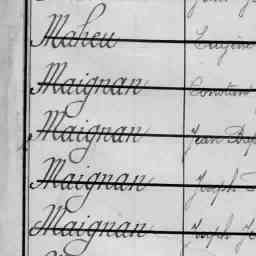 Maheu Eugène
Maignan Constant
Maignan Jean Bap
Maignan Joseph
Maignan Joseph Je